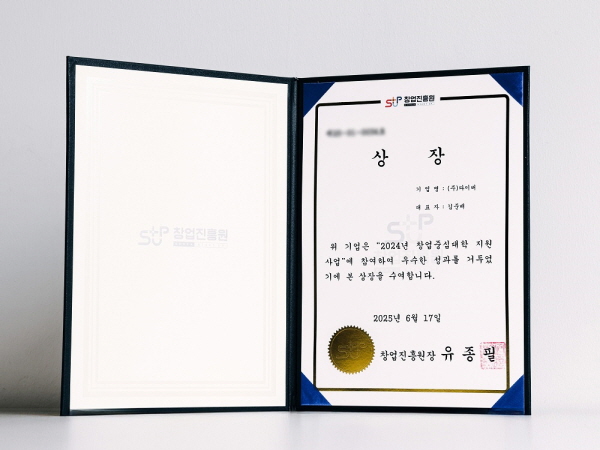 창업진흥원
창업진흥원
상 장
기 업 명 : (주)다이버
대 표 자 : 김준배
위 기업은 "2024년 창업중심대학 지원
사업"에 참여하여 우수한 성과를 거두었
기에 본 상장을 수여합니다.
2025년 6월 17일
창업진흥원장 유 종 필